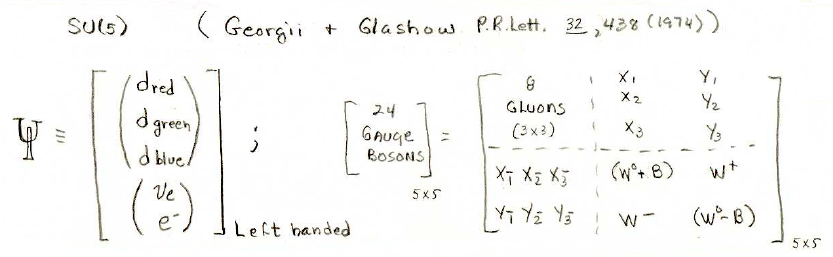 SU(5) ( Georgii + Glashow P.R.Lett. 32, 438 (1974) )
Ψ ≡ [ ( d red d green d blue ) ( νe e- ) ] Left handed ; [ 24 GAUGE BOSONS ] 5x5 =
8 GLUONS (3x3) X1 X2 X3 Y1 Y2 Y3
X1̄ X2̄ X3̄ (W°+B) W+
Y1̄ Y2̄ Y3̄ W- (W°-B)
5x5